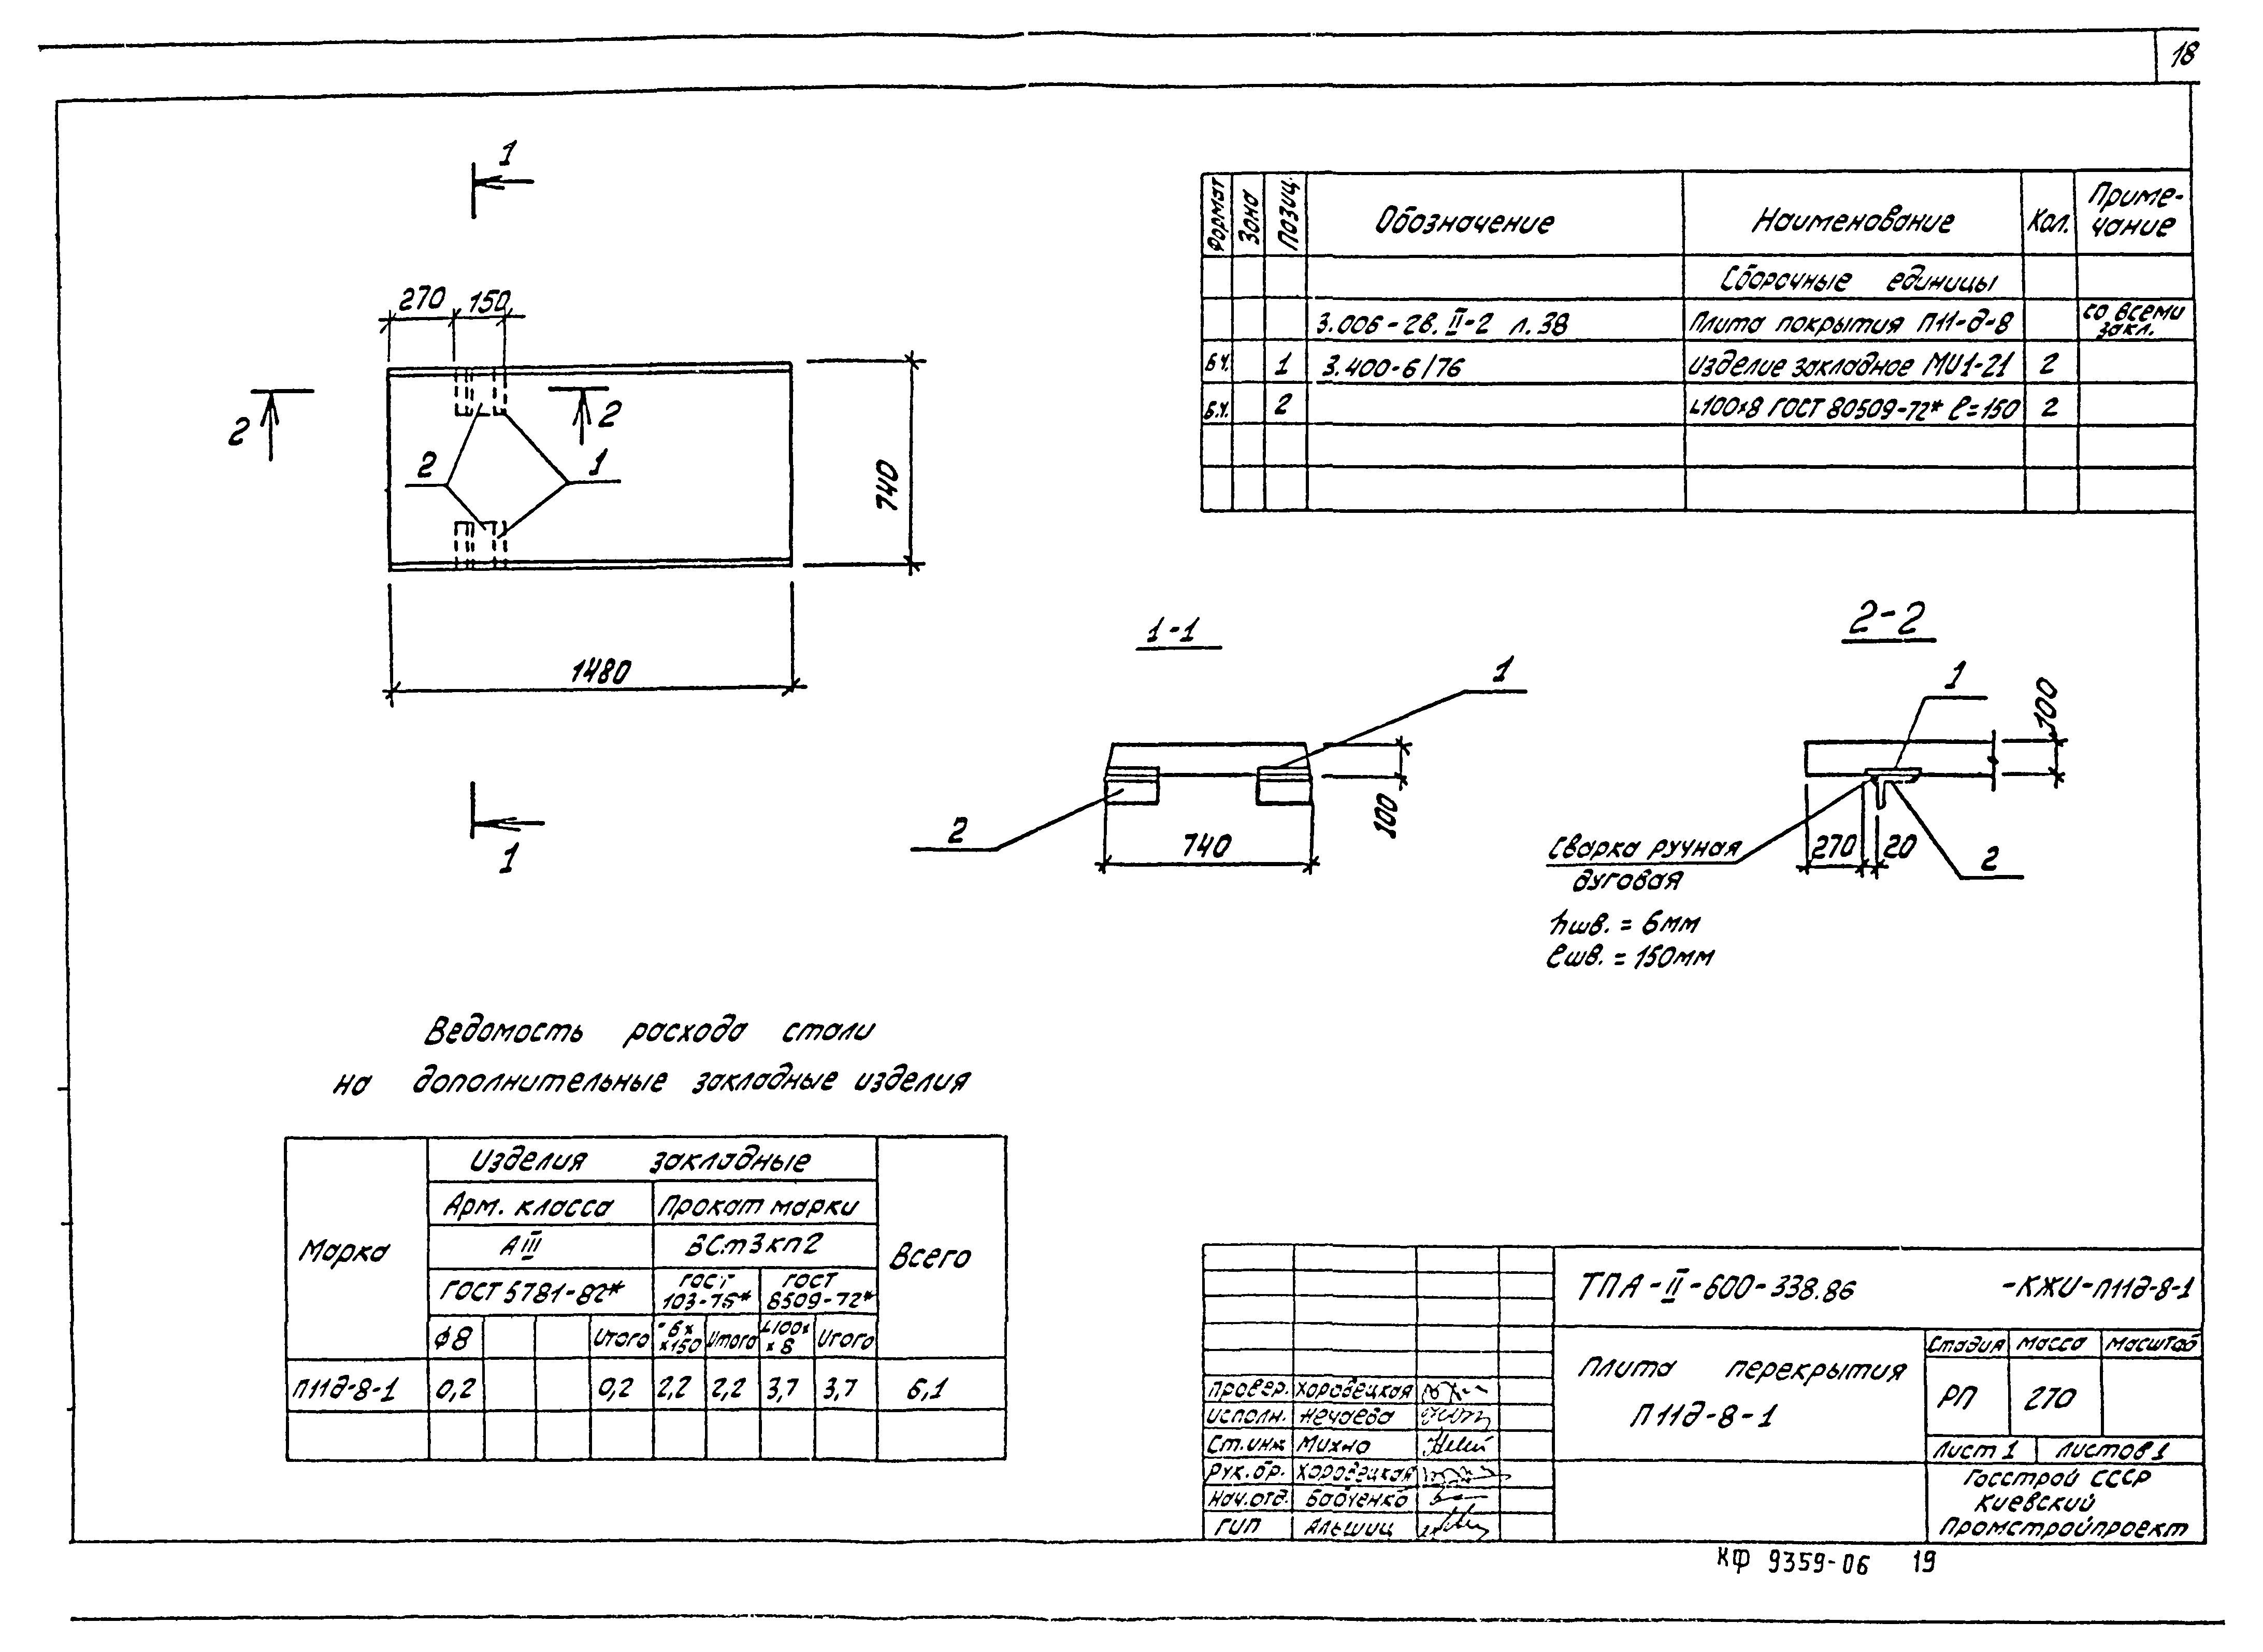 18
1
270 150
2
2
2
1
740
1480
1
Формат
Зона
Позиц.
Обозначение
Наименование
Кол.
Приме-
чание
Сборочные единицы
3.006-2в. II-2 л.38 Плита покрытия П11-д-8 со всеми
закл.
Б.Ч. 1 3.400-6/76 Изделие закладное МИ1-21 2
Б.Ч. 2 L100×8 ГОСТ 80509-72* ℓ=150 2
1-1
1
100
2
740
2-2
1
100
Сварка ручная
дуговая
270 20
2
hшв. = 6мм
ℓшв. = 150мм
Ведомость расхода стали
на дополнительные закладные изделия
Марка
Изделия закладные
Всего
Арм. класса Прокат марки
АIII ВСт3кп2
ГОСТ 5781-82*
ГОСТ
103-76*
ГОСТ
8509-72*
ф8 Итого
-6×
×150
Итого
L100×
×8
Итого
П11д-8-1 0,2 0,2 2,2 2,2 3,7 3,7 6,1
ТПА-II-600-338.86 -КЖИ-П11д-8-1
Плита перекрытия
П11д-8-1
Стадия Масса Масштаб
РП 270
Лист 1 Листов 1
Госстрой СССР
Киевский
Промстройпроект
Провер. Хоровецкая
Исполн. Нечаева
Ст.инж Михно
Рук.бр. Хоровецкая
Нач.отд. Бабченко
ГИП Альшиц
КФ 9359-06 19